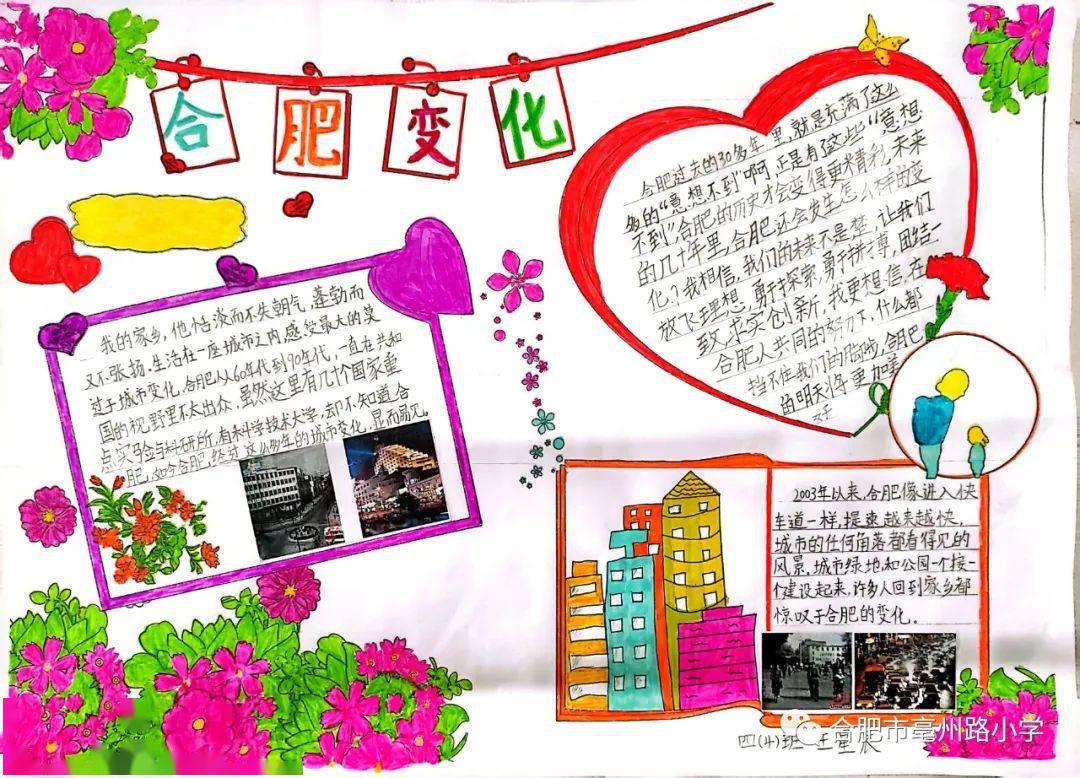 合肥变化
我的家乡,他,恬淡而不失朝气,蓬勃而
又不张扬.生活在一座城市之内,感觉最大的莫
过于城市变化,合肥从60年代到90年代,一直在共和
国的视野里不太出众,虽然这里有几个国家重
点实验与科研所,有科学技术大学,却不知道合
肥,如今合肥,经过这么多年的城市变化,显而易见。
合肥过去的30多年里,就是充满了这么
多的“意想不到”啊,正是有了这些“意想
不到”合肥的历史才会变得更精彩,未来
的几十年里,合肥还会发生怎么样的变
化?我相信,我们的未来不是梦,让我们
放飞理想,勇于探索,勇于拼搏,团结一
致,求实创新,我更相信,在
合肥人共同的努力下,什么都
挡不住我们的脚步,合肥
的明天将更加美
2003年以来,合肥像进入快
车道一样,提速越来越快,
城市的任何角落都看得见的
风景,城市绿地,和公园一个接一
个建设起来,许多人回到家乡都
惊叹于合肥的变化。
四(4)班 王星辰
合肥市亳州路小学